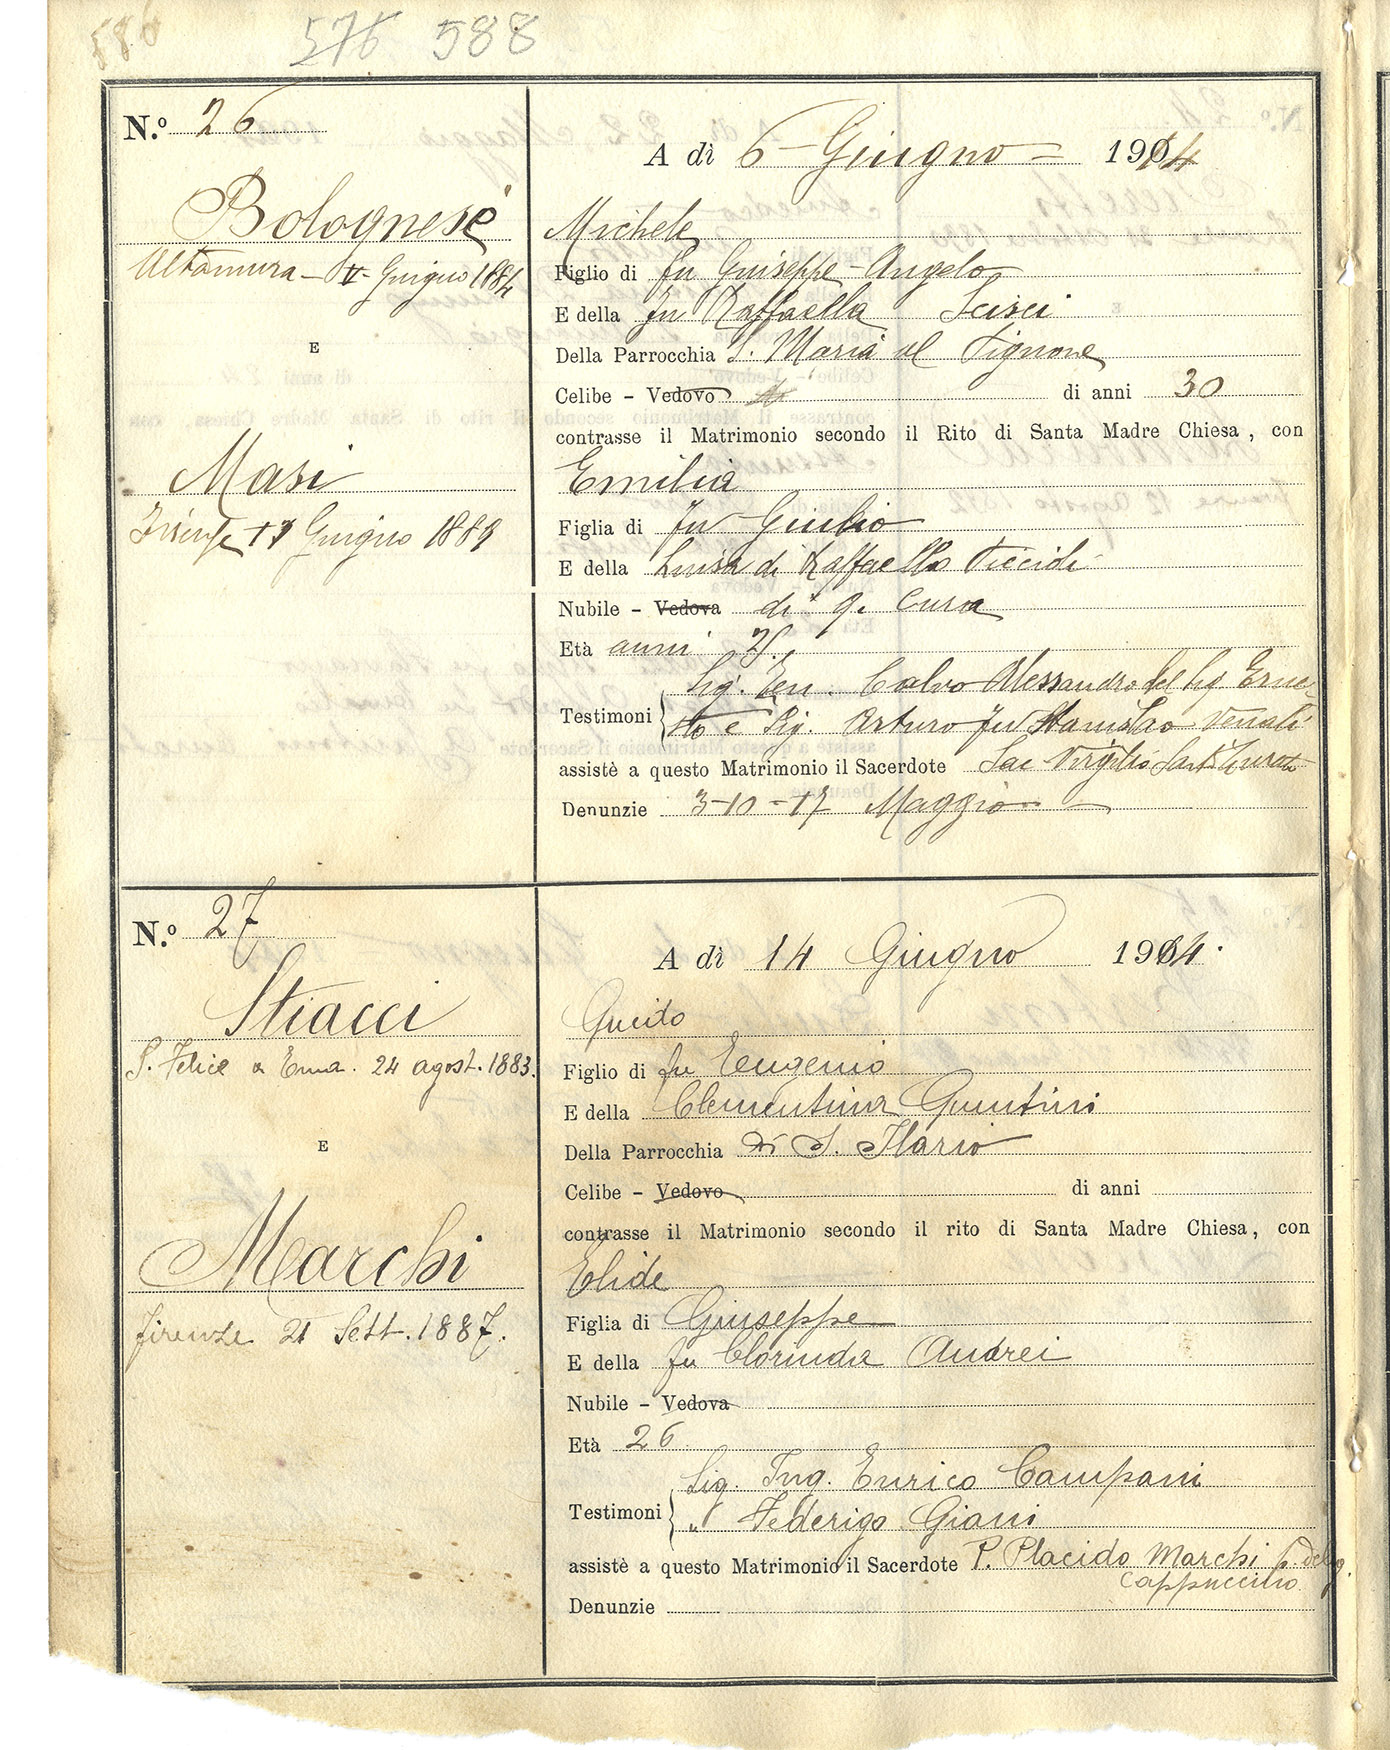 586 576 588
N.º 26
A dì 6 Giugno 1914
Bolognese
Michele
Altamura - V - Giugno 1884
Figlio di fu Giuseppe-Angelo
E della fu Raffaella Scisci
E
Della Parrocchia S. Maria al Pignone
Celibe - Vedovo di anni 30
contrasse il Matrimonio secondo il Rito di Santa Madre Chiesa, con
Masi
Emilia
Firenze 17 Giugno 1889
Figlia di fu Giulio
E della Luisa di Raffaello
Nubile - Vedova di q. Cura
Età anni 25.
Sig. Ten. Calvo Alessandro del Sig. Erne-
Testimoni sto e Sig. Arturo fu Stanislao Venali
assistè a questo Matrimonio il Sacerdote Sac Virgilio Curato
Denunzie 3-10-17 Maggio
N.º 27
A dì 14 Giugno 1914.
Stiacci
Guido
S. Felice a Ema. 24 agost. 1883.
Figlio di fu Eugenio
E della Clementina Quintini
E
Della Parrocchia di S. Ilario
Celibe - Vedovo di anni
contrasse il Matrimonio secondo il rito di Santa Madre Chiesa, con
Marchi
Elide
Firenze 21 Sett. 1887.
Figlia di Giuseppe
E della fu Clorinda Andrei
Nubile - Vedova
Età 26
Sig. Ing. Enrico Campani
Testimoni " Federigo Giani
assistè a questo Matrimonio il Sacerdote P. Placido Marchi p. deleg.
Cappuccino
Denunzie